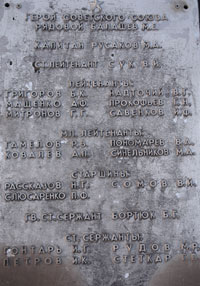 ГЕРОЙ СОВЕТСКОГО СОЮЗА
РЯДОВОЙ БАЛАШЕВ М.Е.
КАПИТАН РУСАКОВ М.А.
СТ. ЛЕЙТЕНАНТ СУК В.К.
ЛЕЙТЕНАНТЫ:
ГРИГОРОВ Б.К. КАЦТОЧИЙ В.Г.
МАЩЕНКО А.Ф. ПРОКОФЬЕВ
МИТРОНОВ Г.Г. САВЕНКОВ
МЛ. ЛЕЙТЕНАНТЫ:
ГАМЕЛОВ В. АНТИПОВ В.А.
КОВАЛЕВ А. СИНЕЛЬНИКОВ М.А.
СТАРШИНЫ:
РАССКАЗОВ Н.Г. СОМОВ В.К.
СЛЮСАРЕНКО
ГВ. СТ. СЕРЖАНТ БОРТЮК Б.Г.
СТ. СЕРЖАНТЫ:
ГОНТАРЬ Х.Г. РУДОВ
ПЕТРОВ И.К. СТЕГКАР